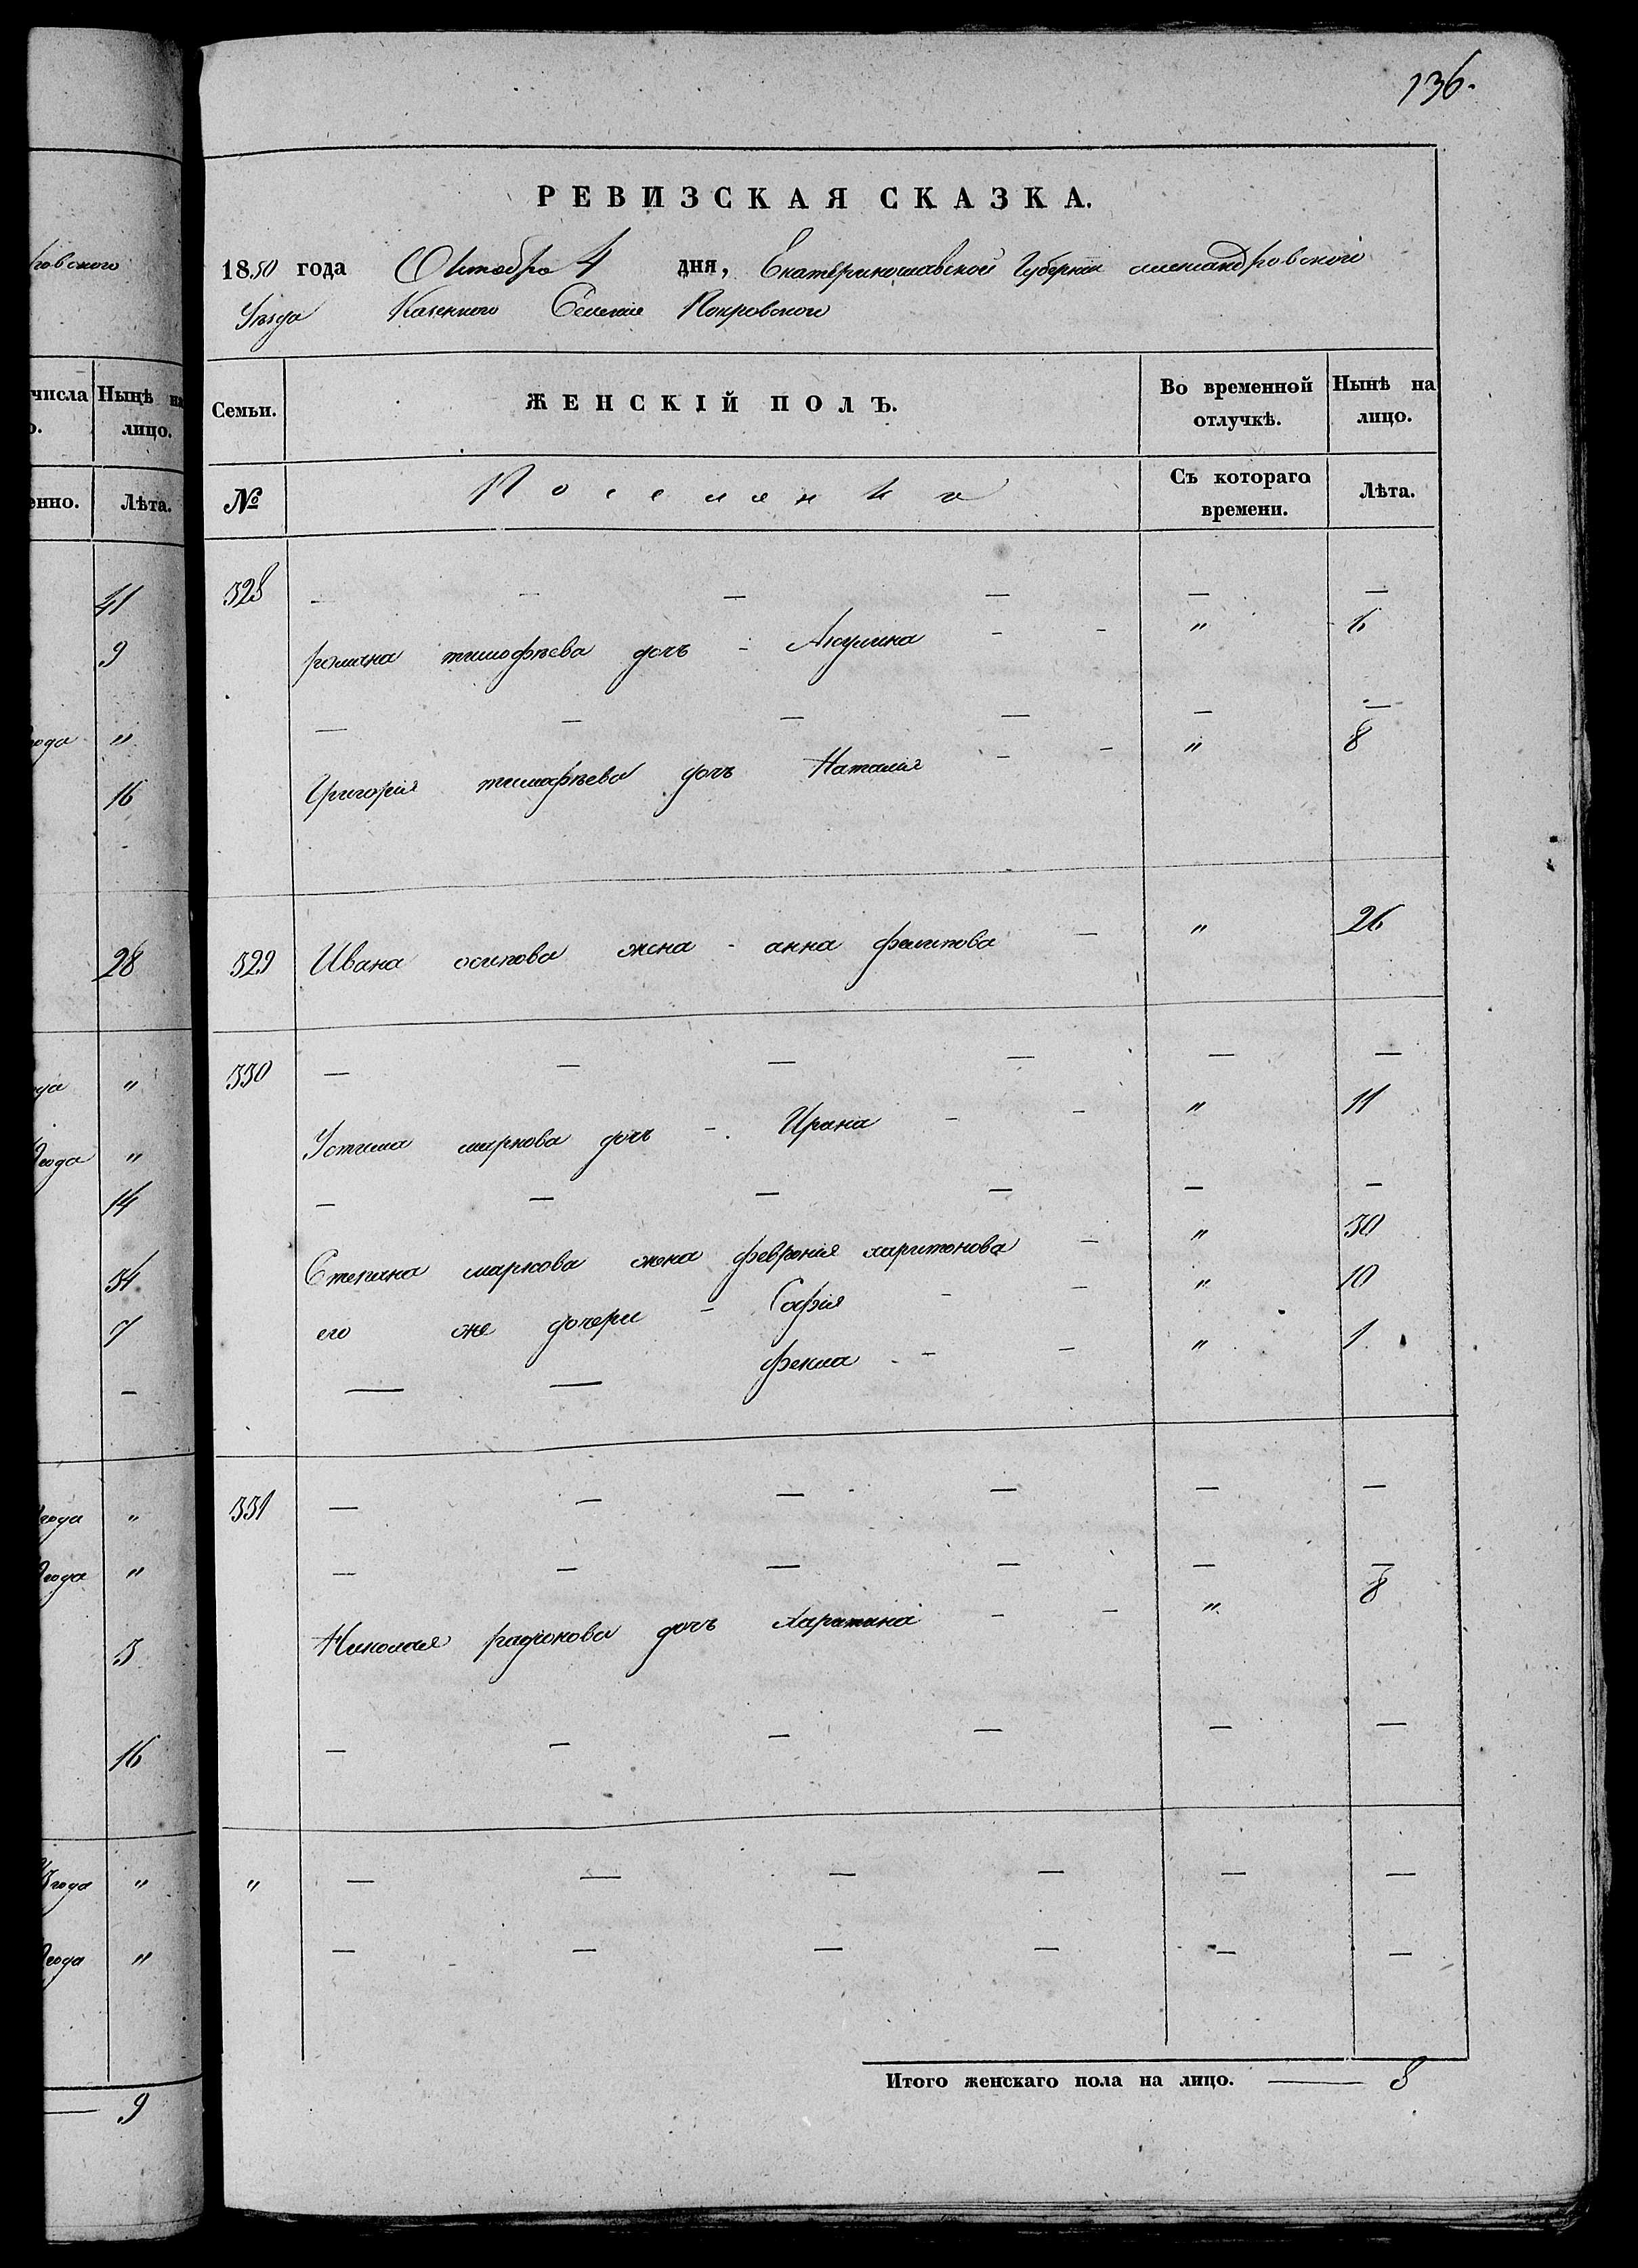 136.
РЕВИЗСКАЯ СКАЗКА.
1850 года Октября 4 дня, Екатеринославской Губернии александровского
Уезда Казенного Селения Покровского
Семьи. ЖЕНСКІЙ ПОЛЪ. Во временной отлучкѣ. Нынѣ на лицо.
№ Поселянка Съ котораго времени. Лѣта.
328 — — — — — —
романа тимофѣева дочъ - Акулина - - " 6
— — — — — —
Григорія тимофѣева дочъ Наталія - - " 8
329 Ивана осипова жена - анна филипова - " 26
330 — — — — — —
Устима маркова дочъ - Ирина - - " 11
— — — — — —
Степана маркова жена феврония харитонова - " 30
его же дочери - Софія - - " 10
— — фекла - - " 1
331 — — — — — —
— — — — — —
Николая радионова дочъ - - " 8
— — — — — —
" — — — — — —
— — — — — —
Итого женскаго пола на лицо. — 8
ровского
числа Нынѣ на
о. лицо.
енно. Лѣта.
41
9
года "
16
28
года "
года "
14
34
7
—
года "
года "
3
16
года "
года "
— 9